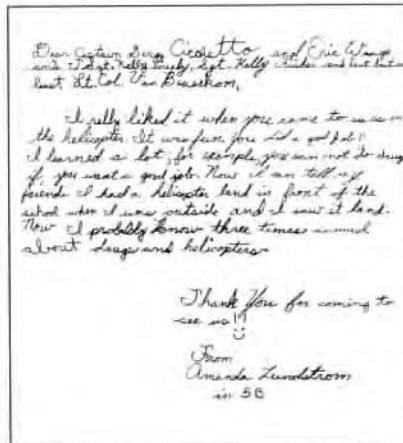 Dear Captain Serg. Cicoletto and Eric Wange
and T.Sgt. Kelly Kelly and last but not
least Lt. Col. Van
I really liked it when you came to us in
the helicopter. It was fun, you did a good job!!
I learned a lot, for example, you can not do drugs
if you want a good job. Now I can tell my
friends I had a helicopter land in front of the
school when I was outside and I saw it land.
Now I probably know three times as much
about drugs and helicopters.
Thank You for coming to
see us!!
From
Amanda Lundstrom
in 5B